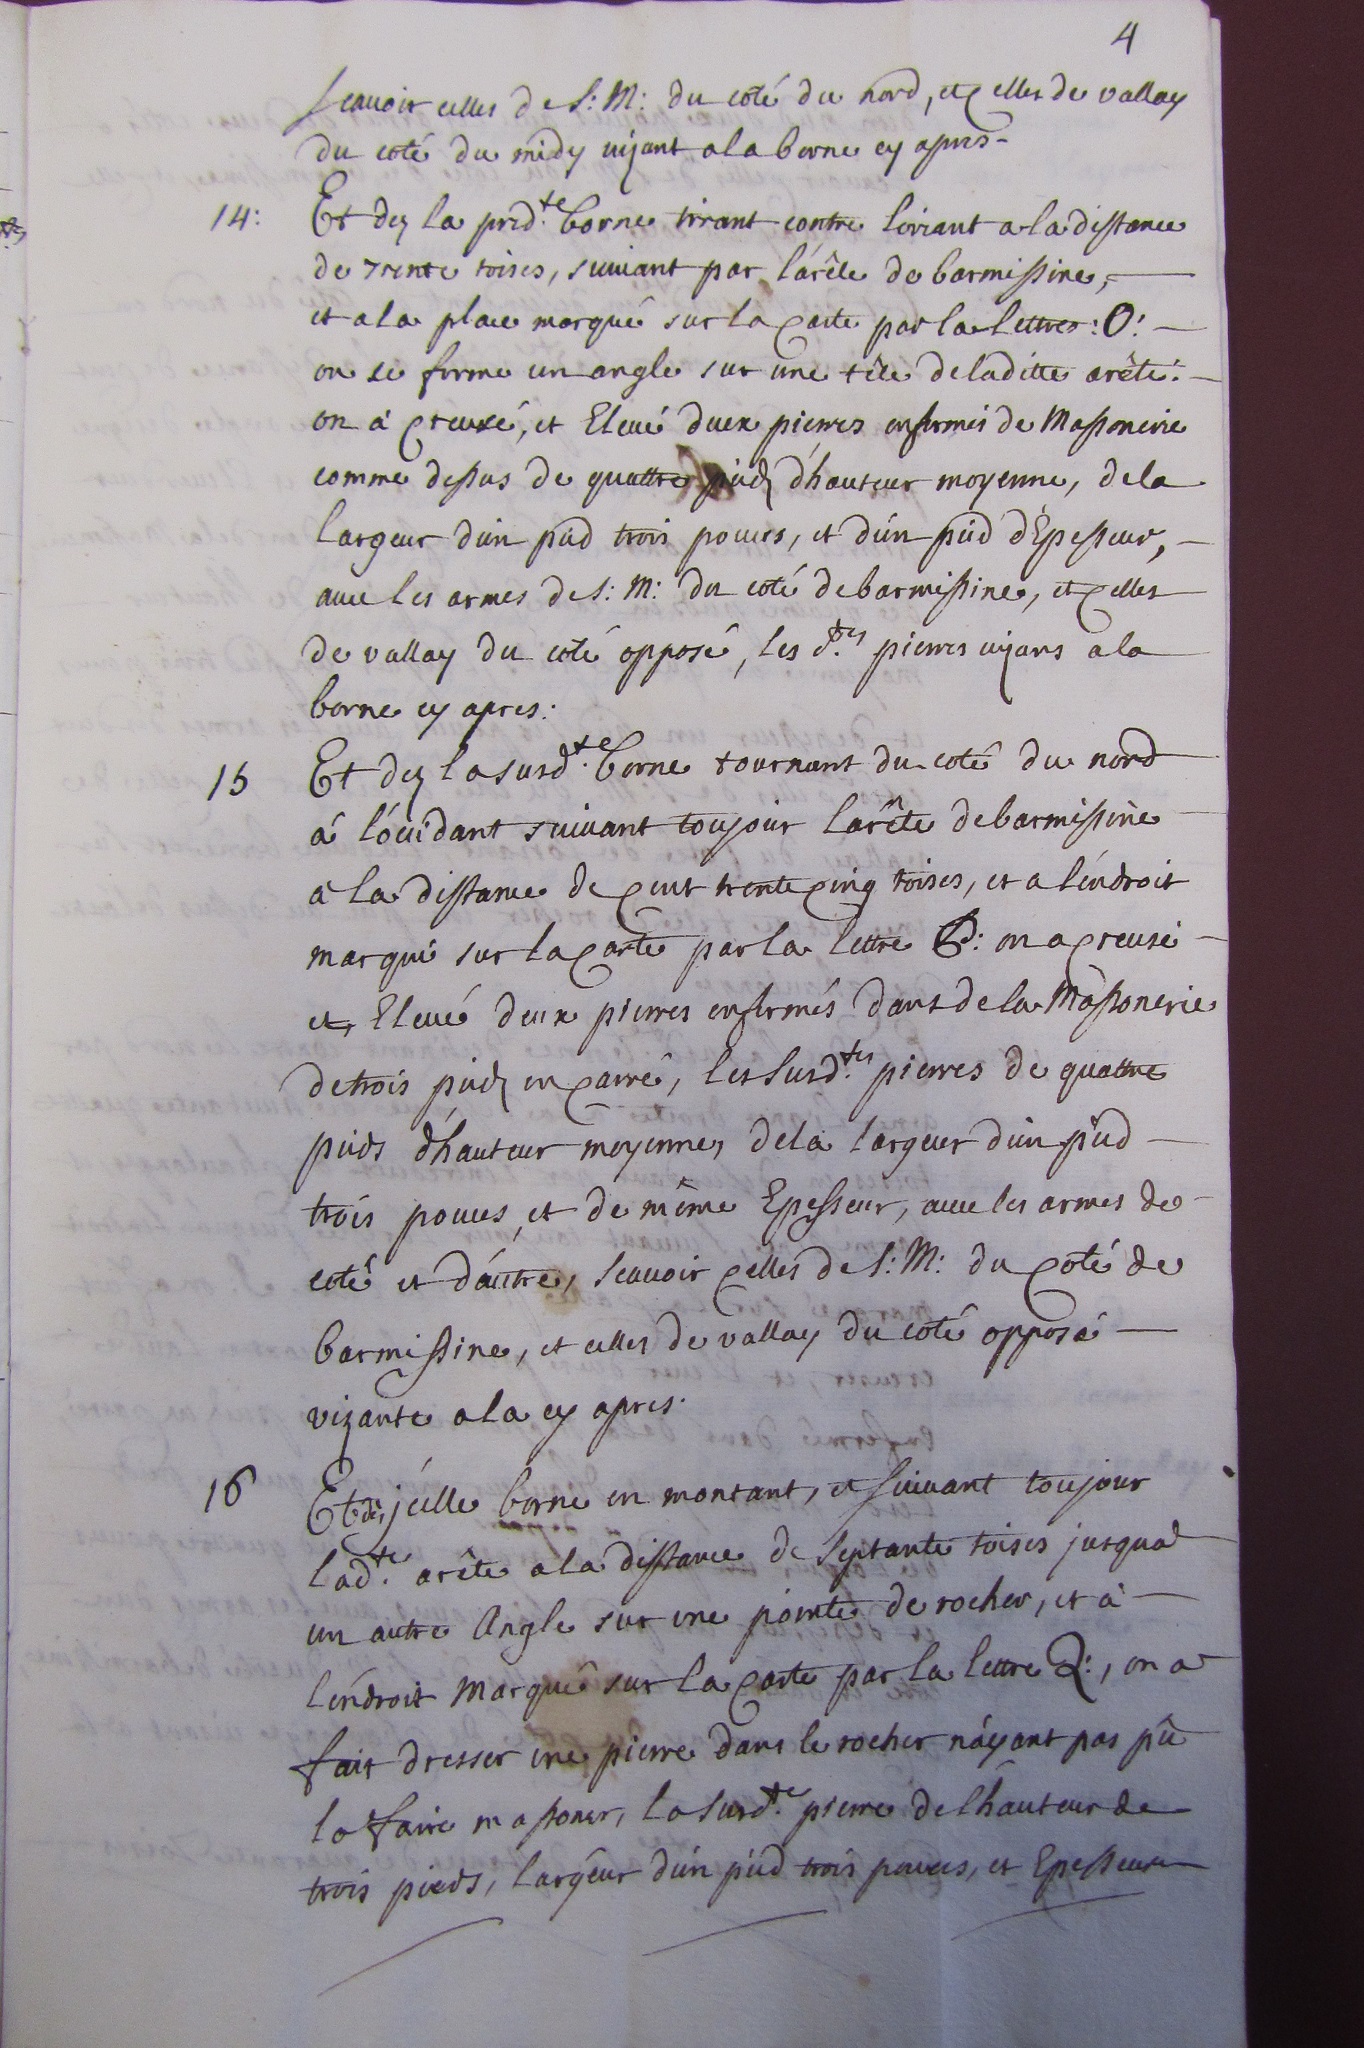 4
scavoir celles de S: M: du coté du nord, et celles de vallay
du coté du midy vizant a la borne cy apres -
14: Et dez la pred.te borne tirant contre loriant a la distance
de trente toises, suivant par l'arête de barmissine,
et a la place marqué sur la carte par la lettres: O:
ou se forme un angle sur une tête de laditte arête.
on a creusé, et Elevé deux pierres enfermés de Massonerie
comme dessus de quattre piedz d'hauteur moyenne, de la
largeur d'un pied trois pouces, et d'un pied d'Epesseur,
avec les armes de S: M: du coté de barmissine, et celles
de vallay du coté opposé, les d.tes pierres vizans a la
borne cy apres:
15 Et dez la susd.te borne tournant du coté du nord
á l'ouidant suivant toujour l'arête de barmissine
a la distance de cent trente cinq toises, et a l'éndroit
marqué sur la carte par la lettre P: on a creusé
et Elevé deux pierres enfermés dans de la Massonerie
de trois piedz en carré, les susd.tes pierres de quattre
pieds d'hauteur moyenne, de la largeur d'un pied
trois pouces, et de même Epesseur, avec les armes de
coté et d'autre, scavoir celles de S: M: du coté de
barmissine, et celles de vallay du coté opposé
vizante a la cy apres.
16 Et dez jcelle borne en montant, et suivant toujour
lad.te arête a la distance de septante toises jusqua
un autre Angle sur une pointe de rocher, et á
l'éndroit Marqué sur la carte par la lettre Q:, on a
fait dresser une pierre dans le rocher n'áyant pas pû
la faire massoner, la susd.te pierre de l'hauteur de
trois pieds, largeur d'un pied trois pouces, et Epesseur